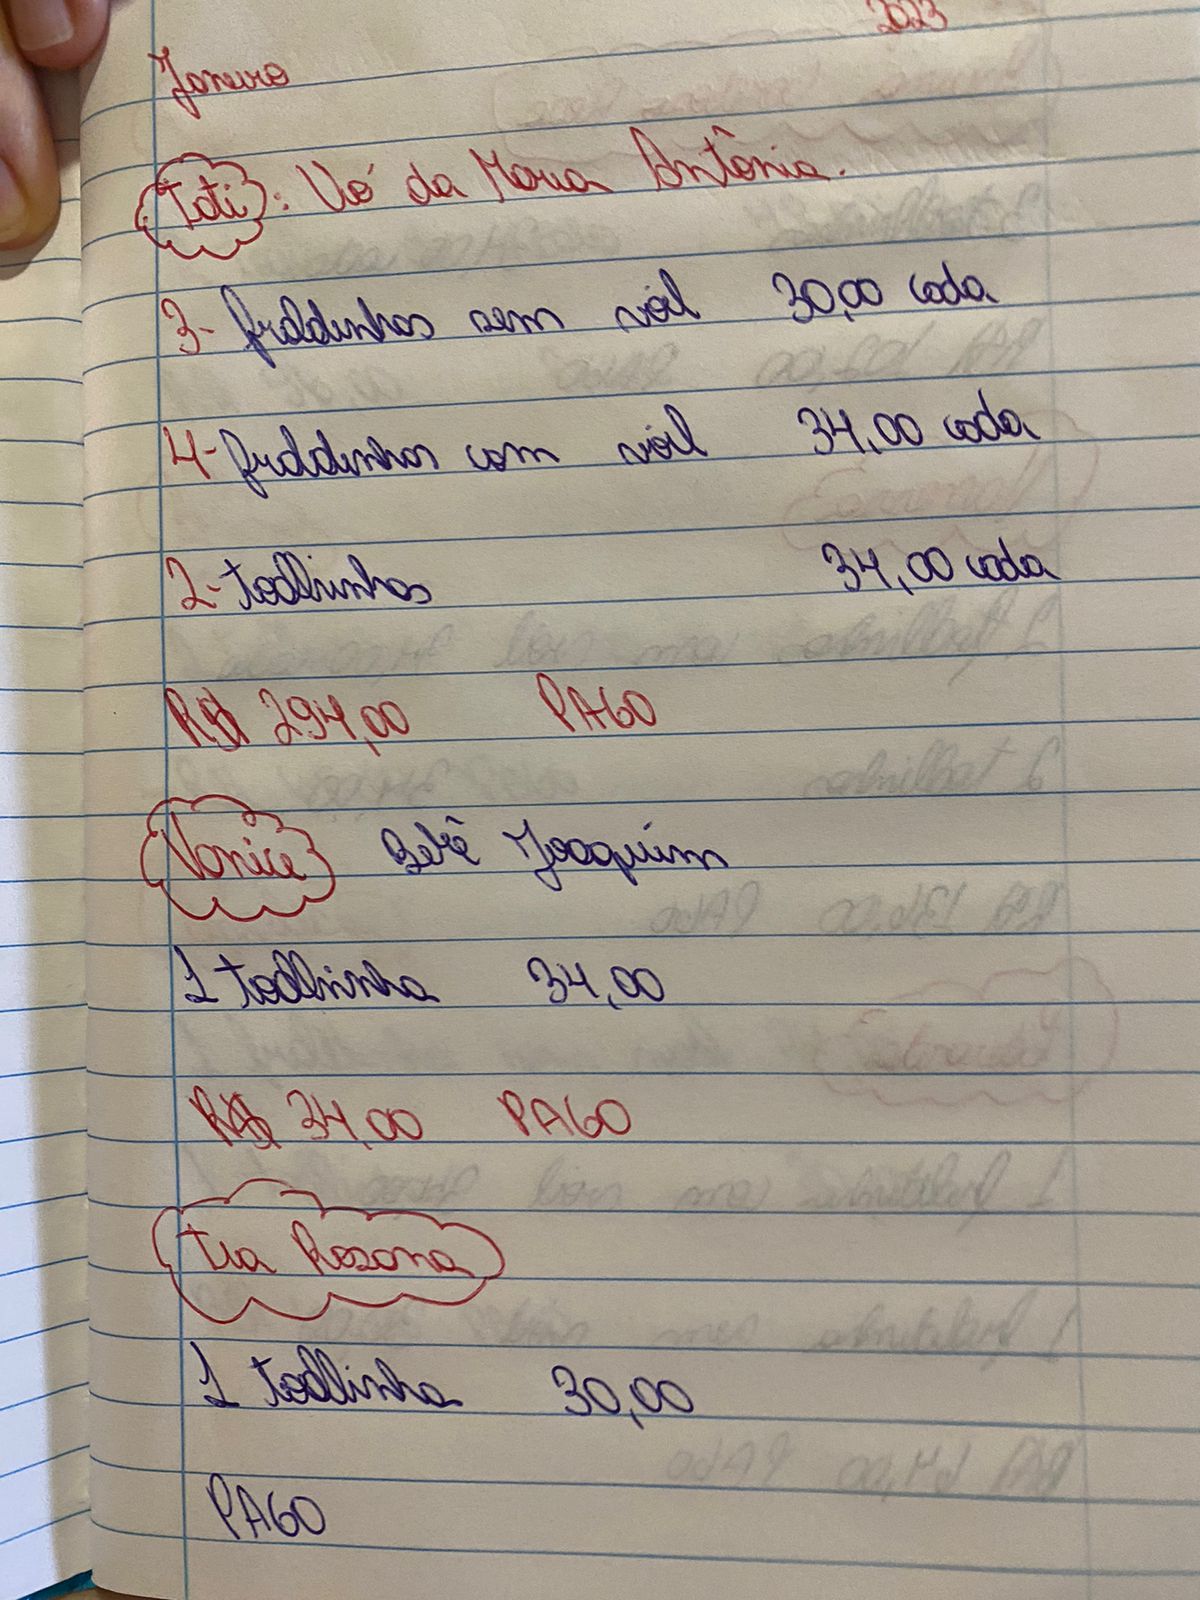 2023
Janeiro
Tati: Vó da Maria Antônia.
3- fraldinhas sem voil 30,00 cada
4- fraldinhas com voil 34,00 cada
2- toalhinhas 34,00 cada
R$ 294,00 PAGO
Vanice Bebê Joaquim
1 toalhinha 34,00
R$ 34,00 PAGO
tia Rosana
1 toalhinha 30,00
PAGO